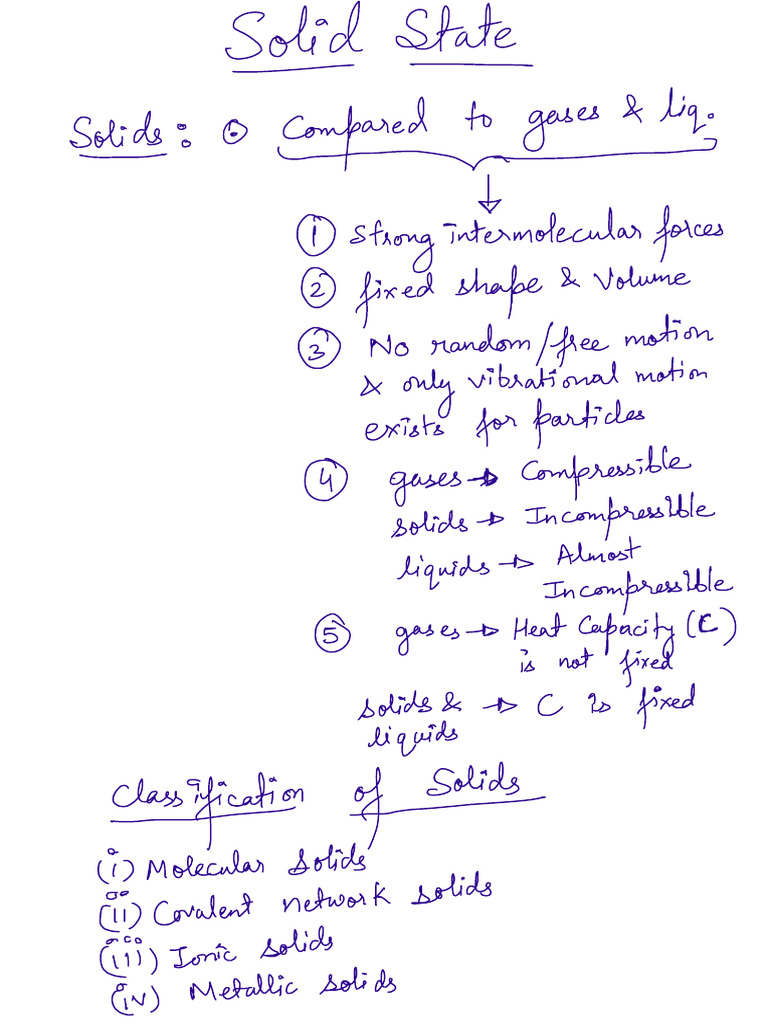 Solid State
Solids: ⊙ Compared to gases & liq.
↓
① Strong intermolecular forces
② fixed shape & Volume
③ No random/free motion
& only vibrational motion
exists for particles
④ gases → Compressible
solids → Incompressible
liquids → Almost
Incompressible
⑤ gases → Heat Capacity (C)
is not fixed
solids & → C is fixed
liquids
Classification of Solids
(i) Molecular solids
(ii) Covalent network solids
(iii) Ionic solids
(iv) Metallic solids